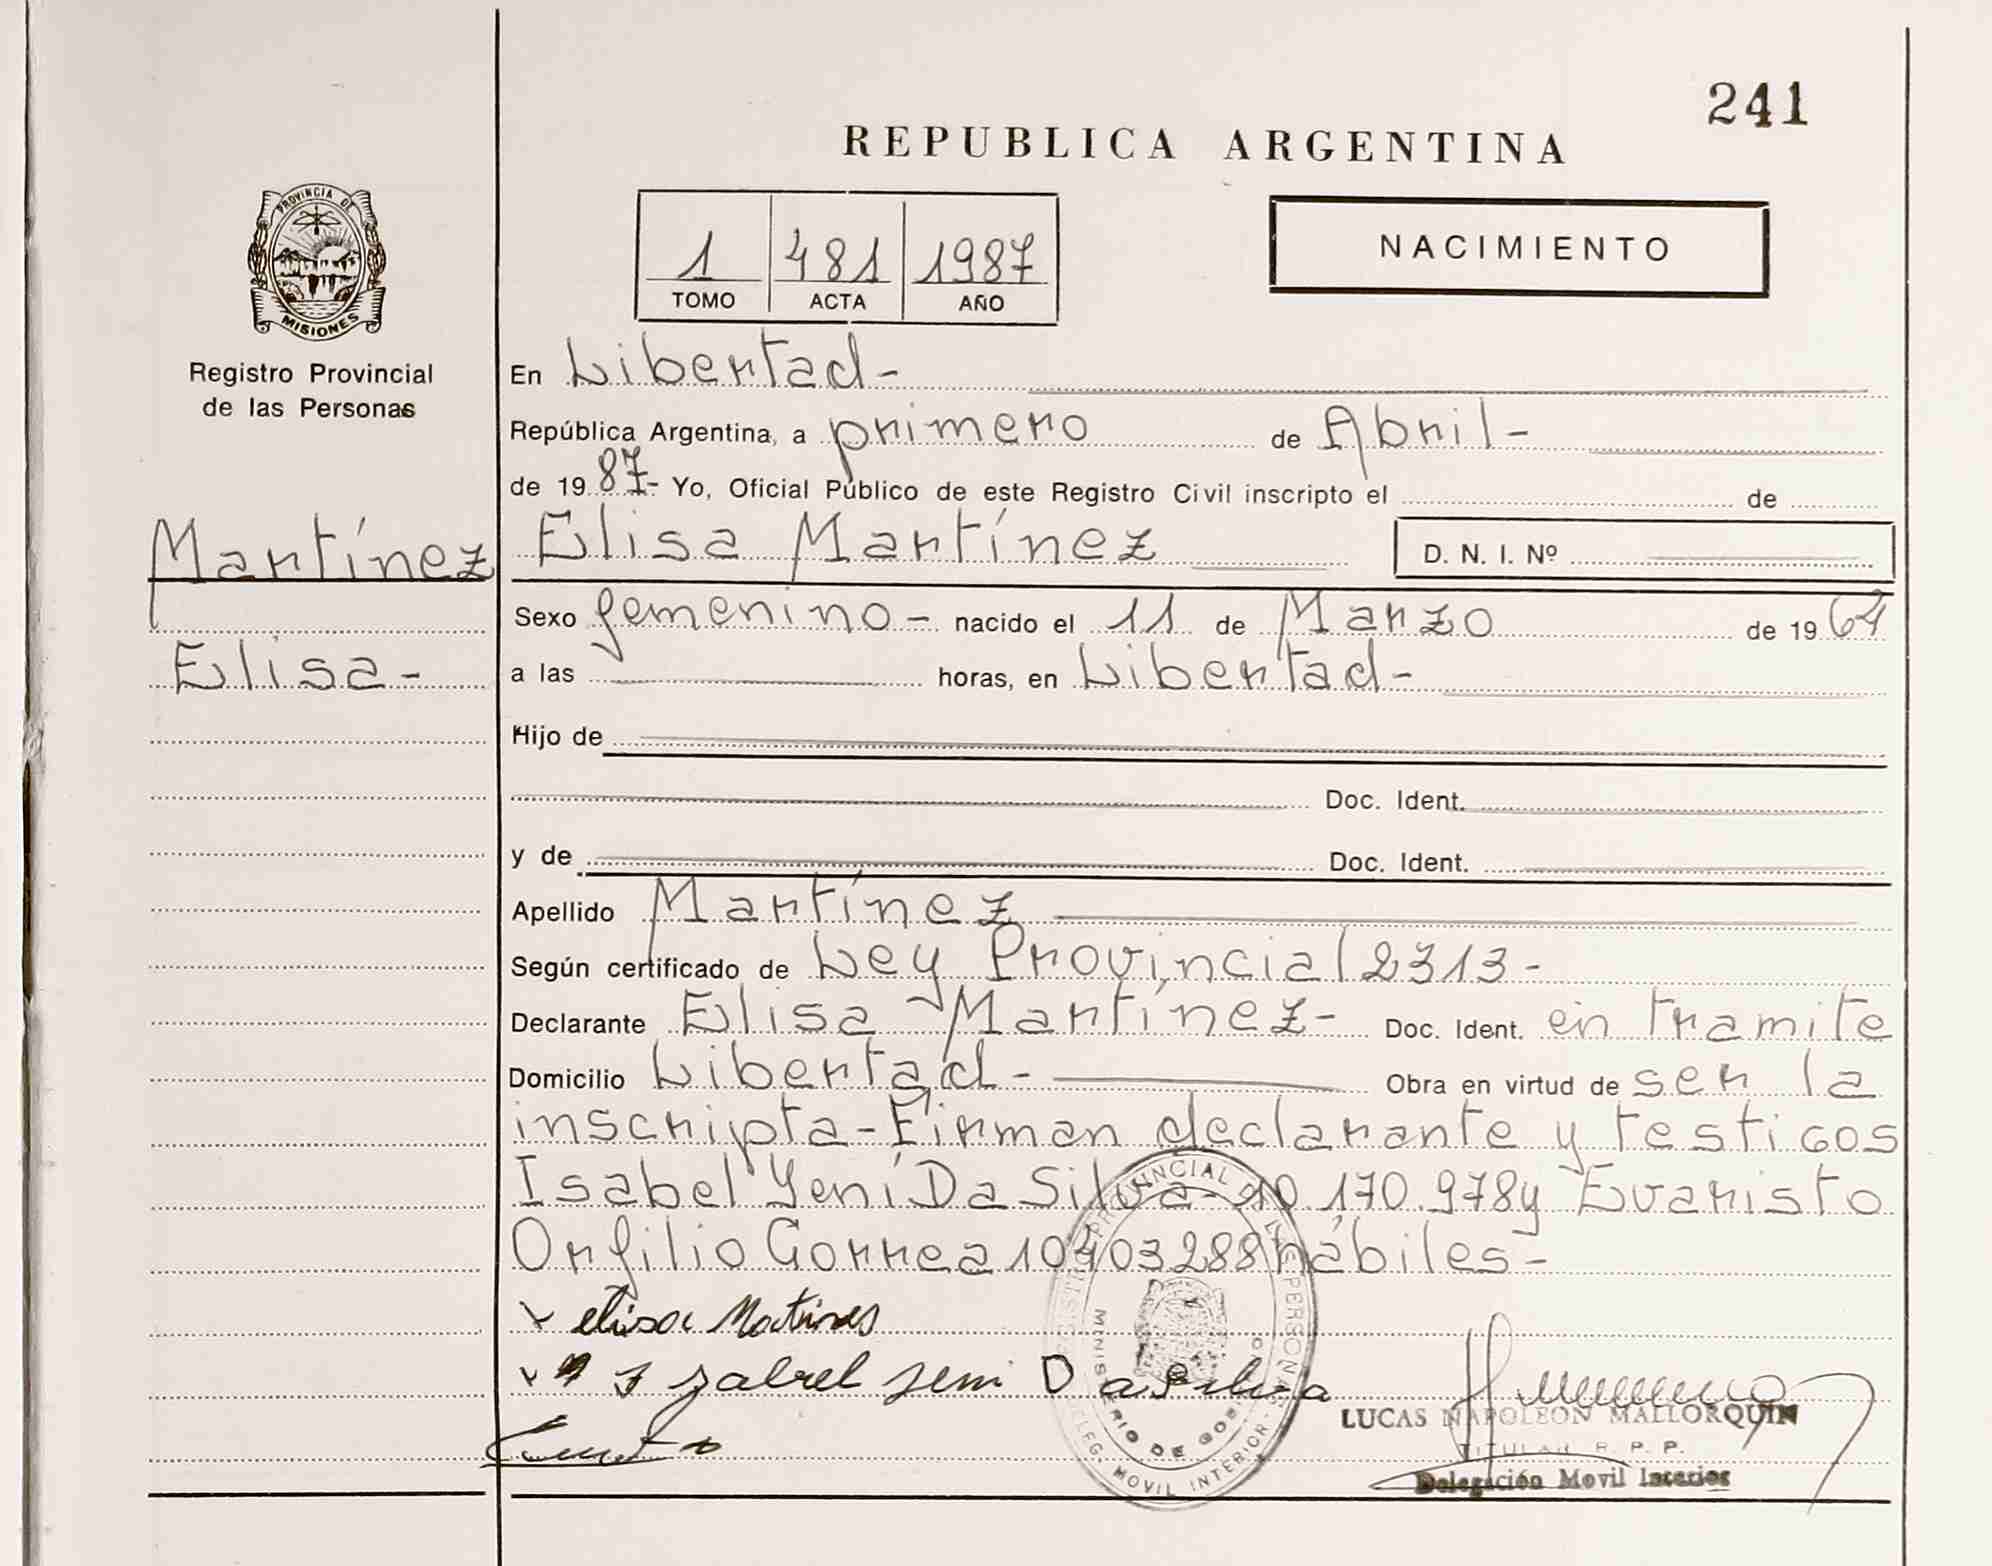 241
REPUBLICA ARGENTINA
1 481 1987
TOMO ACTA AÑO
NACIMIENTO
PROVINCIA DE
MISIONES
Registro Provincial
de las Personas
Martínez
Elisa-
En Libertad-
República Argentina, a primero de Abril-
de 19 87- Yo, Oficial Público de este Registro Civil inscripto el de
Elisa Martínez D. N. I. Nº
Sexo femenino- nacido el 11 de Marzo de 19 64
a las horas, en Libertad-
Hijo de
Doc. Ident.
y de Doc. Ident.
Apellido Martínez
Según certificado de Ley Provincial 2313-
Declarante Elisa Martínez- Doc. Ident. en tramite
Domicilio Libertad- Obra en virtud de ser la
inscripta-Firman declarante y testigos
Isabel Yení Da Silva-10.170.978y Evaristo
Orfilio Correa 10403288hábiles-
elisa Matines
Izabel jeni Da Silva
LUCAS NAPOLEON MALLORQUIN
TITULAR R. P. P.
Delegación Movil Interior
REGISTRO PROVINCIAL DE LAS PERSONAS
MINISTERIO DE GOBIERNO
DELEG. MOVIL INTERIOR